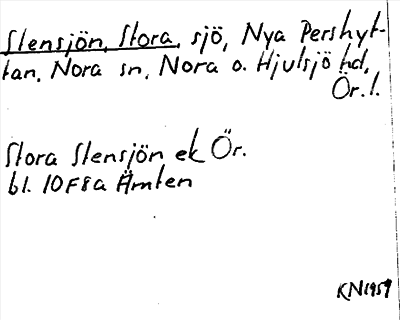 Stensjön, Stora, sjö, Nya Pershyt-
tan, Nora sn, Nora o. Hjulsjö hd,
Ör. l.
Stora Stensjön ek Ör.
bl. 10F8a Ämten
KN1959